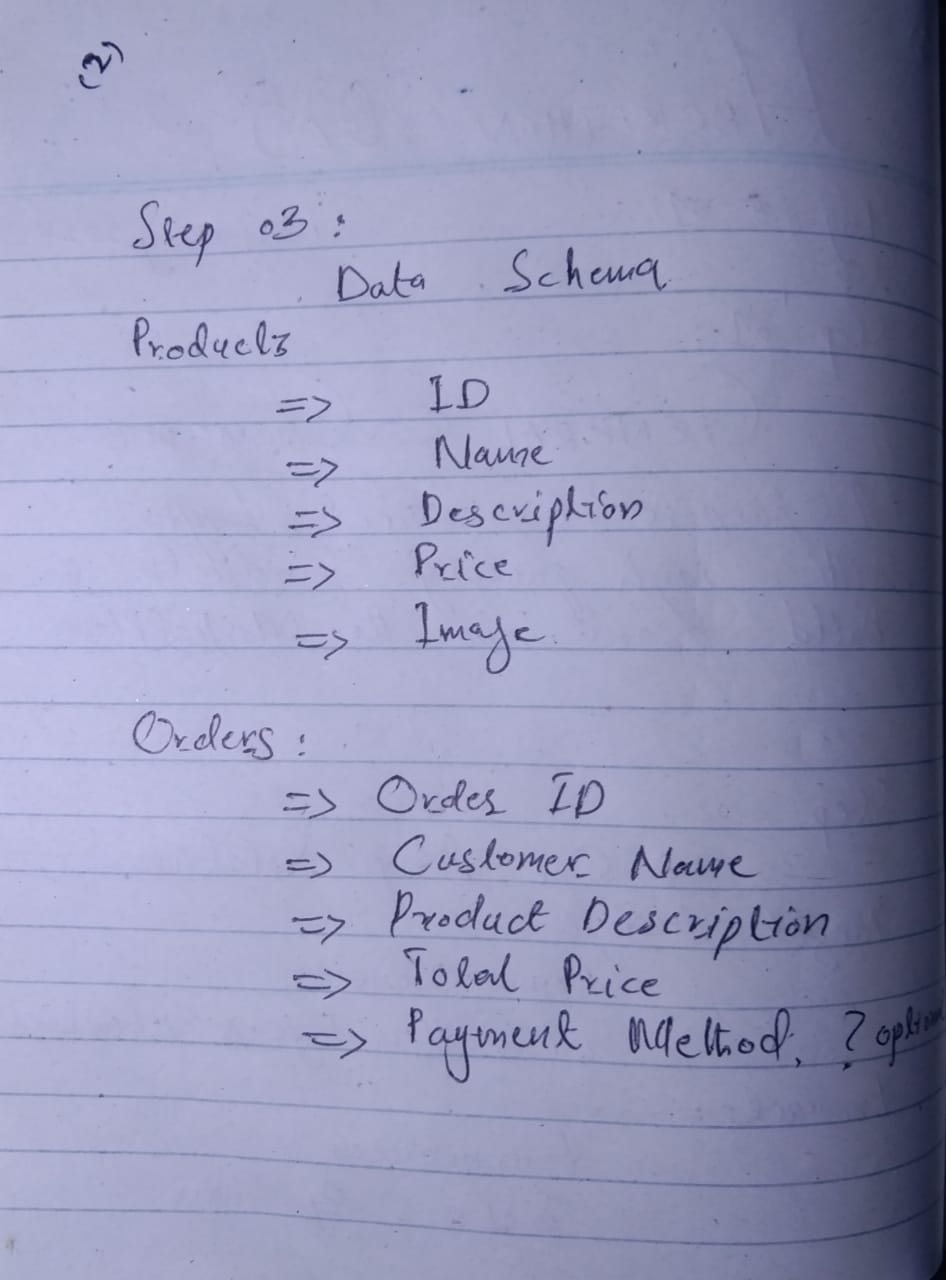 (2)
Step 03:
Data Schema
Products
=> ID
=> Name
=> Description
=> Price
=> Image
Orders:
=> Order ID
=> Customer Name
=> Product Description
=> Total Price
=> Payment Method, ?